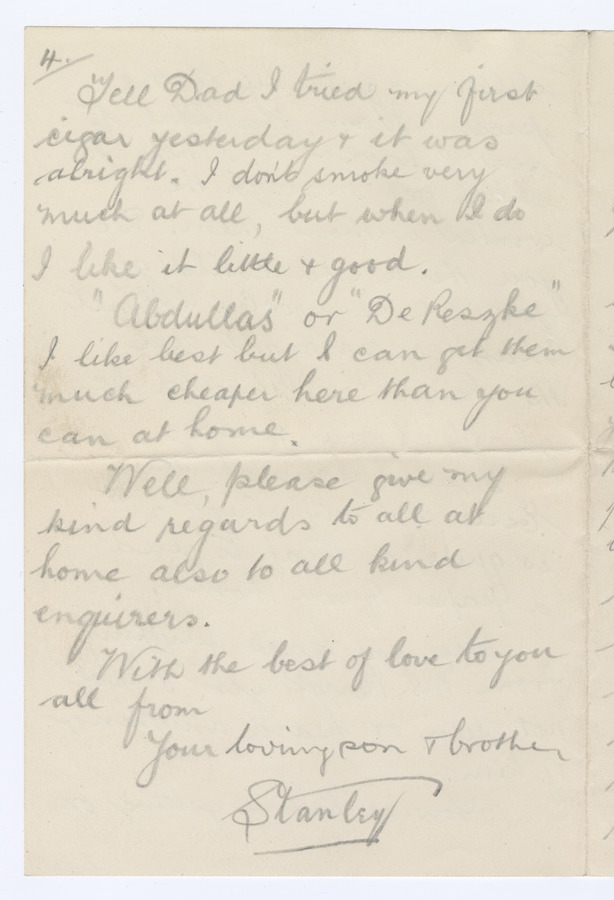 4.
Tell Dad I tried my first
cigar yesterday & it was
alright. I don't smoke very
much at all, but when I do
I like it little & good.
"Abdullas" or "De Reszke"
I like best but I can get them
much cheaper here than you
can at home.
Well, please give my
kind regards to all at
home also to all kind
enquirers.
With the best of love to you
all from
Your loving son & brother
Stanley